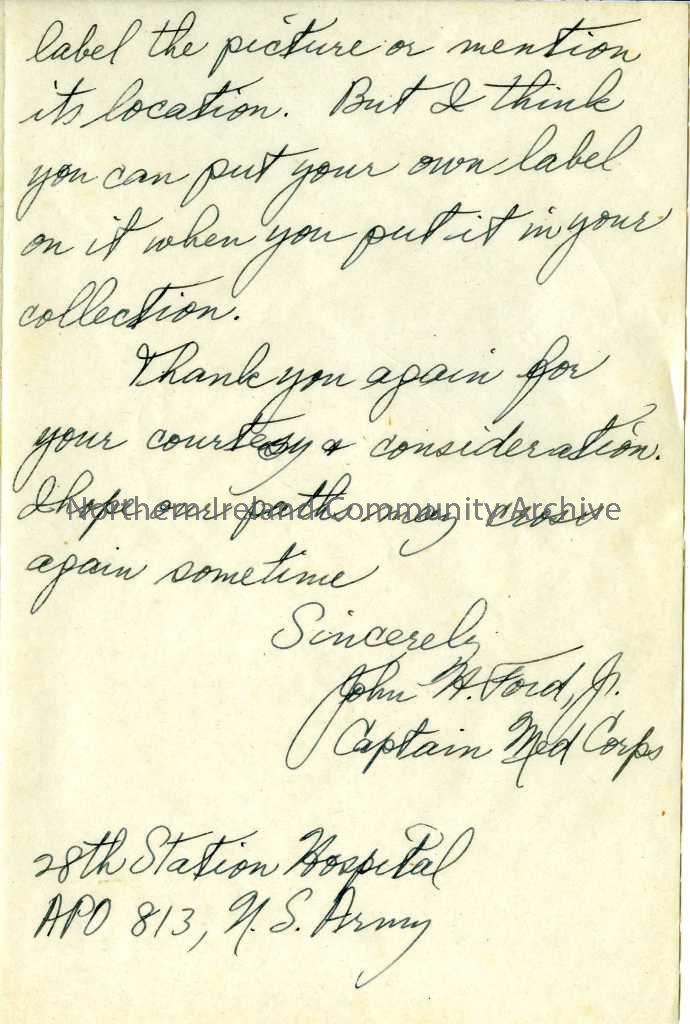 label the picture or mention
its location. But I think
you can put your own label
on it when you put it in your
collection.
Thank you again for
your courtesy & consideration.
I hope our paths may cross
Northern Ireland Community Archive
again sometime
Sincerely
John H. Ford, Jr.
Captain Med Corps
28th Station Hospital
APO 813, U.S. Army